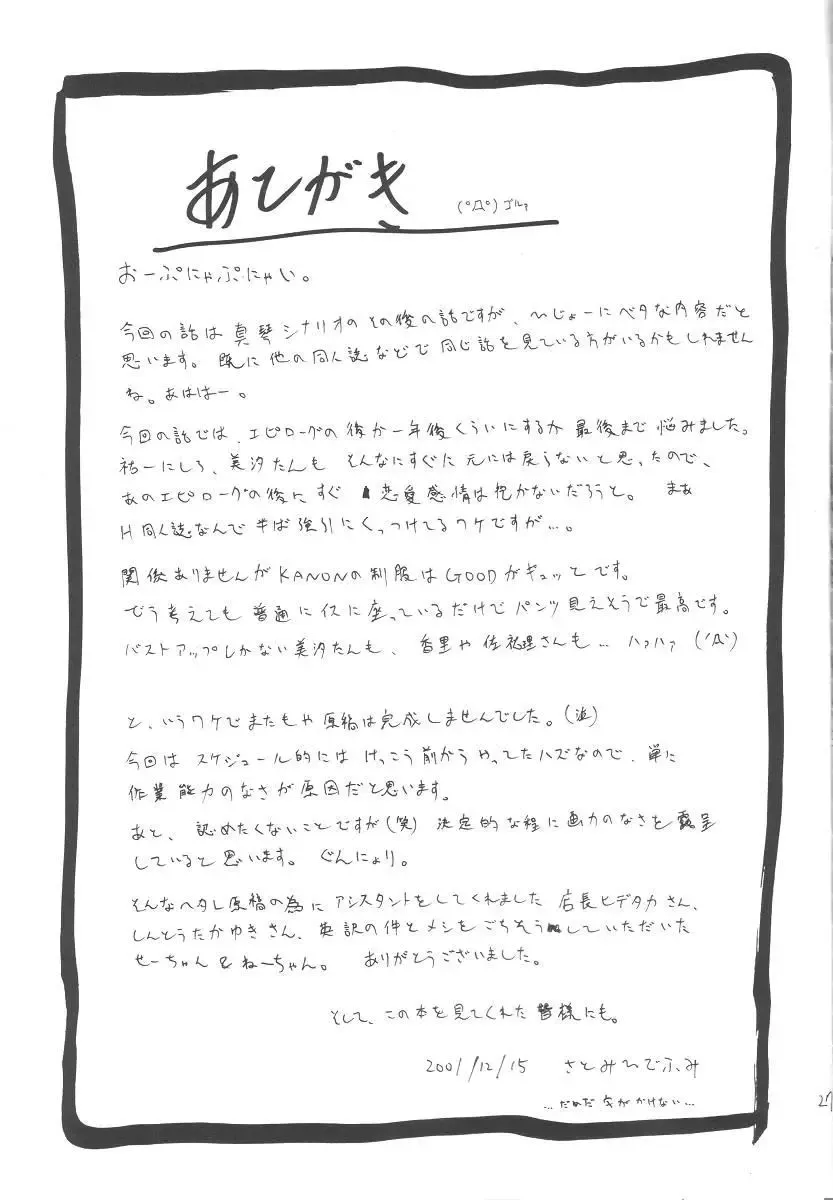 あとがき (゚Д゚)ゴルァ
おーぷにゃぷにゃい。
今回の話は真琴シナリオのその後の話ですが、ひじょーにベタな内容だと
思います。既に他の同人誌などで同じ話を見ている方がいるかもしれません
ね。あははー。
今回の話では、エピローグの後か一年後くらいにするか最後まで悩みました。
祐一にしろ、美汐たんも そんなにすぐに元には戻らないと思ったので、
あのエピローグの後にすぐ 恋愛感情は抱かないだろうと。 まぁ
H同人誌なんで半ば強引にくっつけてるワケですが…。
関係ありませんがKANONの制服はGOODがギュッとです。
どう考えても普通にイスに座っているだけでパンツ見えそうで最高です。
バストアップしかない美汐たんも、香里や佐祐理さんも… ハァハァ (´Д`)
と、いうワケでまたもや原稿は完成しませんでした。(泣)
今回はスケジュール的にはけっこう前からやってたハズなので、単に
作業能力のなさが原因だと思います。
あと、認めたくないことですが(笑) 決定的な程に画力のなさを露呈
していると思います。ぐんにょり。
そんなヘタレ原稿の為にアシスタントをしてくれました 店長ヒデタカさん、
しんとうたかゆきさん、英訳の件とメシをごちそうしていただいた
せーちゃん&ねーちゃん。 ありがとうございました。
そして、この本を見てくれた皆様にも。
2001/12/15 さとみひでふみ
…だめだ字がかけない…
27